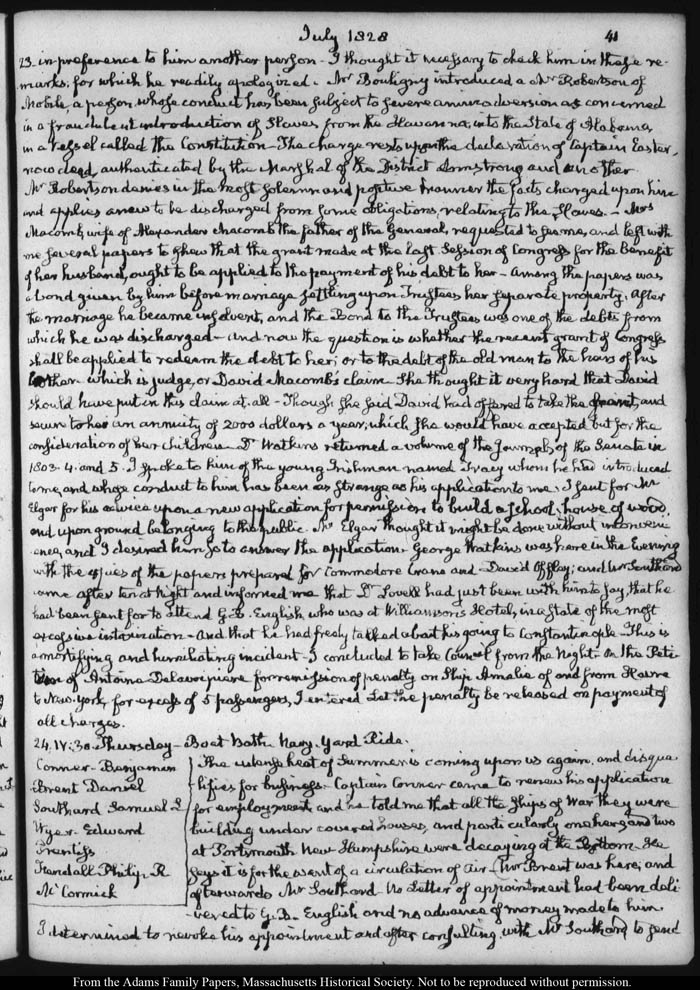 July 1828 41
23. in preference to him another person - I thought it necessary to check him in these re-
marks; for which he readily apologized - Mr Bouligny introduced a Mr Robertson of
Mobile, a person, whose conduct has been subject to severe animadversion as concerned
in a fraudulent introduction of Slaves from the Havanna, into the State of Alabama,
in a vessel called the Constitution - The charge rests upon the declaration of Captain Easter,
now dead, authenticated by the Marshal of the District Armstrong and another
Mr Robertson denies in the most solemn and positive manner the facts, charged upon him
and applies anew to be discharged from some obligations, relating to the Slaves. - Mrs
Macomb, wife of Alexander Macomb the father of the General, requested to see me, and left with
me several papers to shew that the grant made at the last Session of Congress for the benefit
of her husband, ought to be applied to the payment of his debt to her - Among the papers was
a bond given by him before marriage settling upon Trustees her separate property. After
the marriage he became insolvent, and the Bond to the Trustees was one of the debts from
which he was discharged - and now the question is whether the recent grant of Congress
shall be applied to redeem the debt to her; or to the debt of the old man to the heirs of his
brother which is judge, or David Macomb's claim. She thought it very hard that David
should have put in this claim at all - Though she said David had offered to take the grant, and
secure to her an annuity of 2000 dollars a year, which she would have accepted but for the
consideration of her children - Dr Watkins returned a volume of the Journals of the Senate in
1803. 4. and 5. I spoke to him of the young Irishman named Tracy whom he had introduced
to me, and whose conduct to him has been as strange as his application to me. I sent for Mr
Elgar for his advice upon a new application for permission to build a school-house of wood,
and upon ground belonging to the public. Mr Elgar thought it might be done without inconveni-
ence, and I desired him so to answer the application. George Watkins was here in the Evening
with the copies of the papers prepared for Commodore Crane and David Offley; and Mr Southard
came after ten at Night and informed me that Dr Lovell had just been with him to say, that he
had been sent for to attend G. B. English, who was at Williamson's Hotel, in a State of the most
excessive intoxication - And that he had freely talked about his going to Constantinople - This is
a mortifying and humiliating incident - I concluded to take Counsel from the Night - On the Peti-
tion of Antoine Delavoipiere for remission of penalty on Ship Amalie of and from Havre
to New-York, for excess of 5 passengers, I entered Let the penalty be released on payment of
all charges.
24. IV: 30. Thursday - Boat Bath. Navy-Yard Ride.
Conner - Benjamin
Brent Daniel
Southard Samuel L
Wyer - Edward
Prentiss
Fendall Philip R
McCormick
The intense heat of Summer is coming upon us again, and disqua-
lifies for business. Captain Conner came to renew his application
for employment and he told me that all the Ships of War they were
building under covered houses, and particularly one here, and two
at Portsmouth New Hampshire were decaying at the Bottom - He
says it is for the want of a circulation of air - Mr Brent was here; and
afterwards Mr Southard - No Letter of appointment had been deli-
vered to G. B. English and no advance of money made to him
I determined to revoke his appointment and after consulting with Mr Southard to send
From the Adams Family Papers, Massachusetts Historical Society. Not to be reproduced without permission.